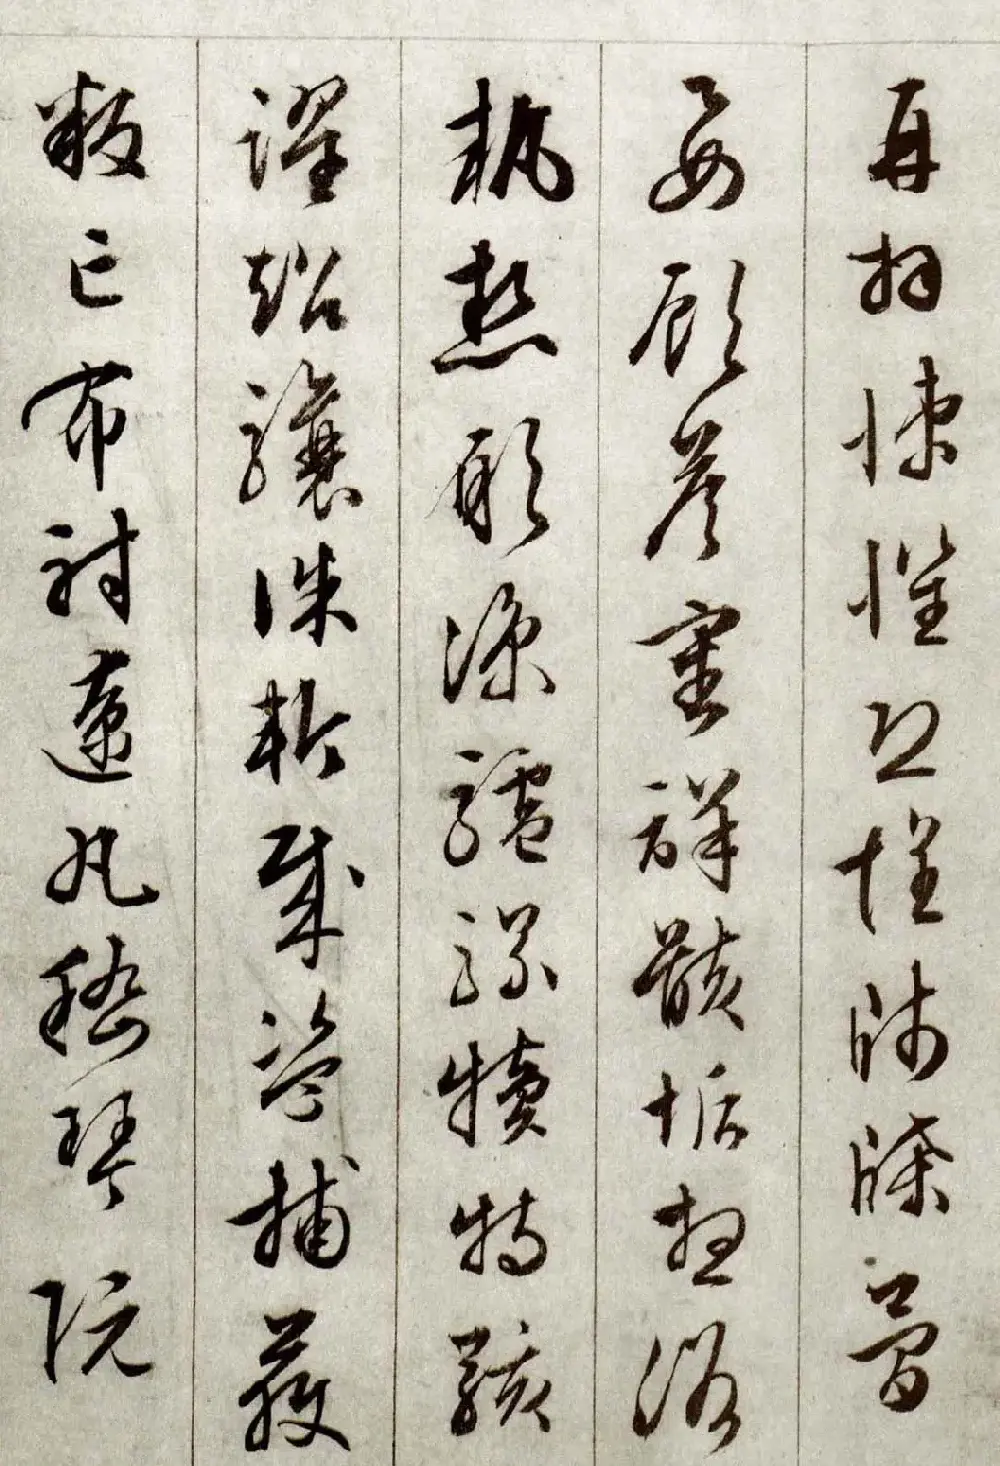 再拜悚惧恐惶牋牒简
要顾答审详骸垢想浴
执热愿凉驴骡犊特骇
跃超骧诛斩贼盗捕获
叛亡布射辽丸嵇琴阮